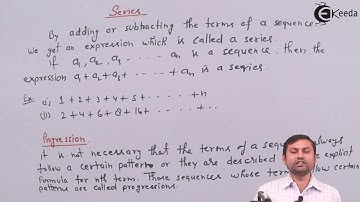 Series
Ekeeda
By adding or subtracting the terms of a sequence
we get an expression which is called a series.
If a₁, a₂, a₃ ..... aₙ is a sequence, then the
expression a₁ + a₂ + a₃ + ..... + aₙ is a series.
Ex: a) 1 + 2 + 3 + 4 + 5 + ....... + n
(ii) 2 + 4 + 6 + 8 + 16 + ....... + ..
Progression
It is not necessary that the terms of a always
follow a certain pattern or they are described explicit
formula for nth term. Those sequences whose terms follow certain
patterns are called progressions.